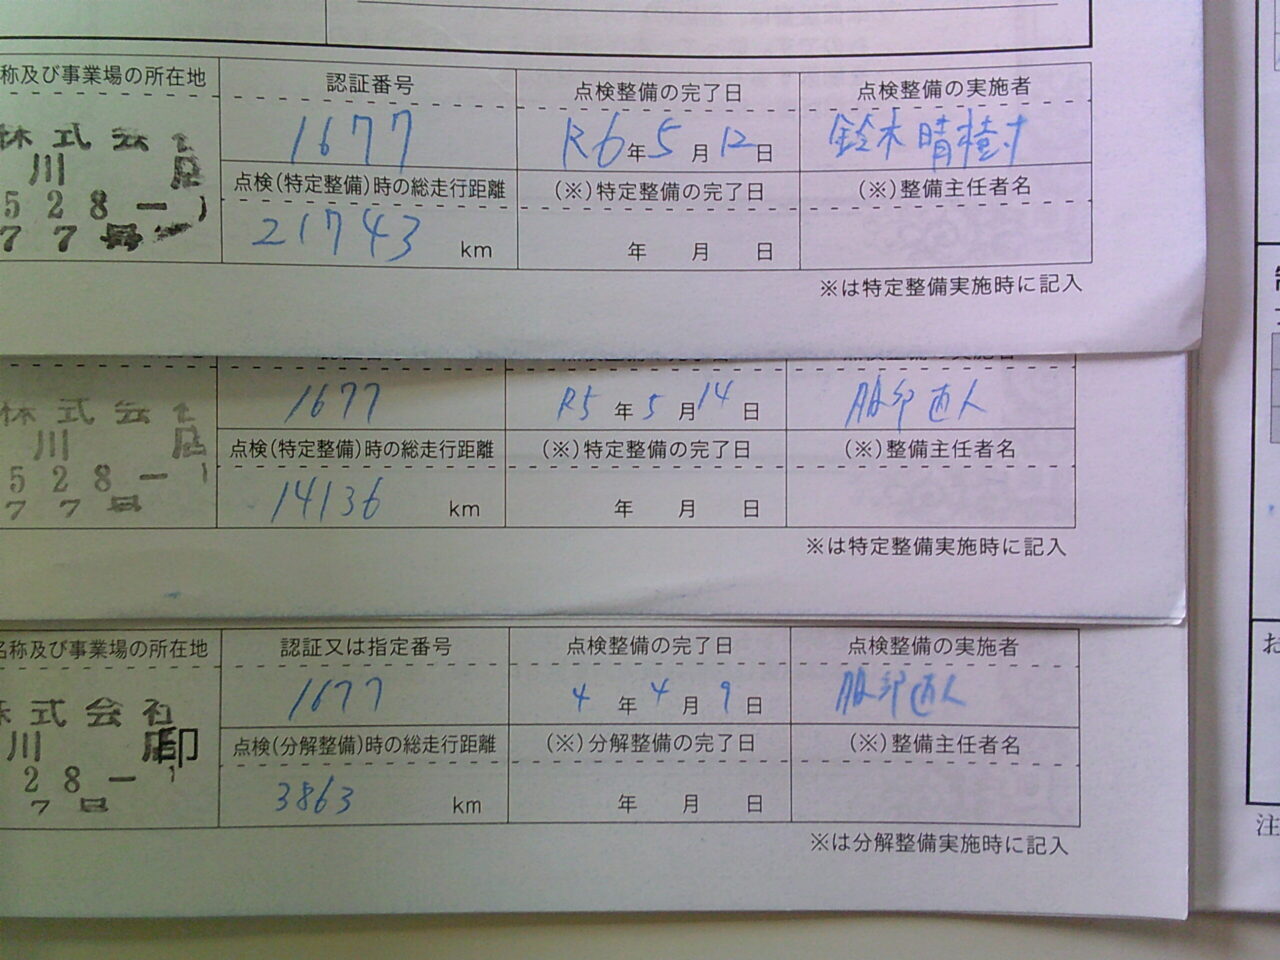 称及び事業場の所在地 認証番号 点検整備の完了日 点検整備の実施者
株式会社 1677 R6年5月12日 鈴木晴樹
川 店 点検(特定整備)時の総走行距離 (※)特定整備の完了日 (※)整備主任者名
528一
77号 21743 km 年 月 日
※は特定整備実施時に記入
認証番号 点検整備の完了日 点検整備の実施者
株式会社 1677 R5年5月14日 服部直人
川 店 点検(特定整備)時の総走行距離 (※)特定整備の完了日 (※)整備主任者名
528一
77号 14136 km 年 月 日
※は特定整備実施時に記入
名称及び事業場の所在地 認証又は指定番号 点検整備の完了日 点検整備の実施者
株式会社 1677 4年4月9日 服部直人
川 店 印 点検(分解整備)時の総走行距離 (※)分解整備の完了日 (※)整備主任者名
28一
7号 3863 km 年 月 日
※は分解整備実施時に記入
お
注